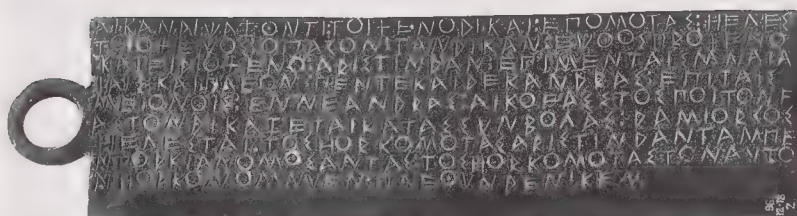 ΑΙΚΑΝΔΙΧΑΖΟΝΤΙΤΟΙΞΕΝΟΔΙΚΑΙ:ΕΠΟΜΟΤΑΣ:ΗΕΛΕΣ
ΤΟΟΞΕΝΟΣΟΠΑΓΟΝΤΑΝΔΙΚΑΝ:ΕΧΘΟΣΠΡΟΞΕΝΟ
ΚΑΙϜΙΔΙΟΞΕΝΟ:ΑΡΙΣΤΙΝΔΑΝ:ΕΠΙΜΕΝΤΑΙΣΜΝΑΙΑΙ
ΑΙΣΚΑΙΠΛΕΟΝ:ΠΕΝΤΕΚΑΙΔΕΚΑΝΔΡΑΣ:ΕΠΙΤΑΙΣ
ΜΕΙΟΝΟΙΣ:ΕΝΝΕΑΝΔΡΑΣ:ΑΙΚΟϜΑΣΣΤΟΣΠΟΙΤΟΝϜ
ΑΣΤΟΝΔΙΚΑΖΕΤΑΙΚΑΤΑΣΣΥΝΒΟΛΑΣ:ΔΑΜΙΟΡΓΟΣ
ΗΕΛΕΣΤΑΙ:ΤΟΣΗΟΡΚΟΜΟΤΑΣΑΡΙΣΤΙΝΔΑΝΤΑΝΠΕ
ΝΤΟΡΚΙΑΝΟΜΟΣΑΝΤΑΣΤΟΣΗΟΡΚΟΜΟΤΑΣΤΟΝΑΥΤΟ
ΝΗΟΡΚΟΝΟΜΝΥΕΝΠΛΕΘΥΝΔΕΝΙΚΕΝ